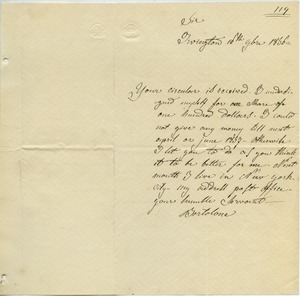 119
Sir
Irvington 16th 9bre 1836
Your circular is received I undersi-
gned myself for one share of
one hundred dollars. I could
not give any money till next
april or june 1837 - Otherwise
I let you to do as you think
it to be better for me. Next
month I live in New york
city - my address post office
your humble Servant
Bartolone